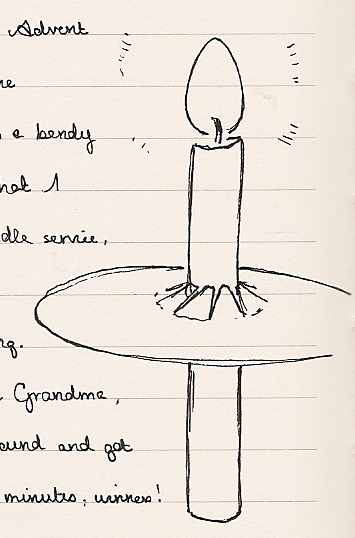 Advent
a bendy
hat I
dle service,
Grandma,
ound and got
minutes, winner!